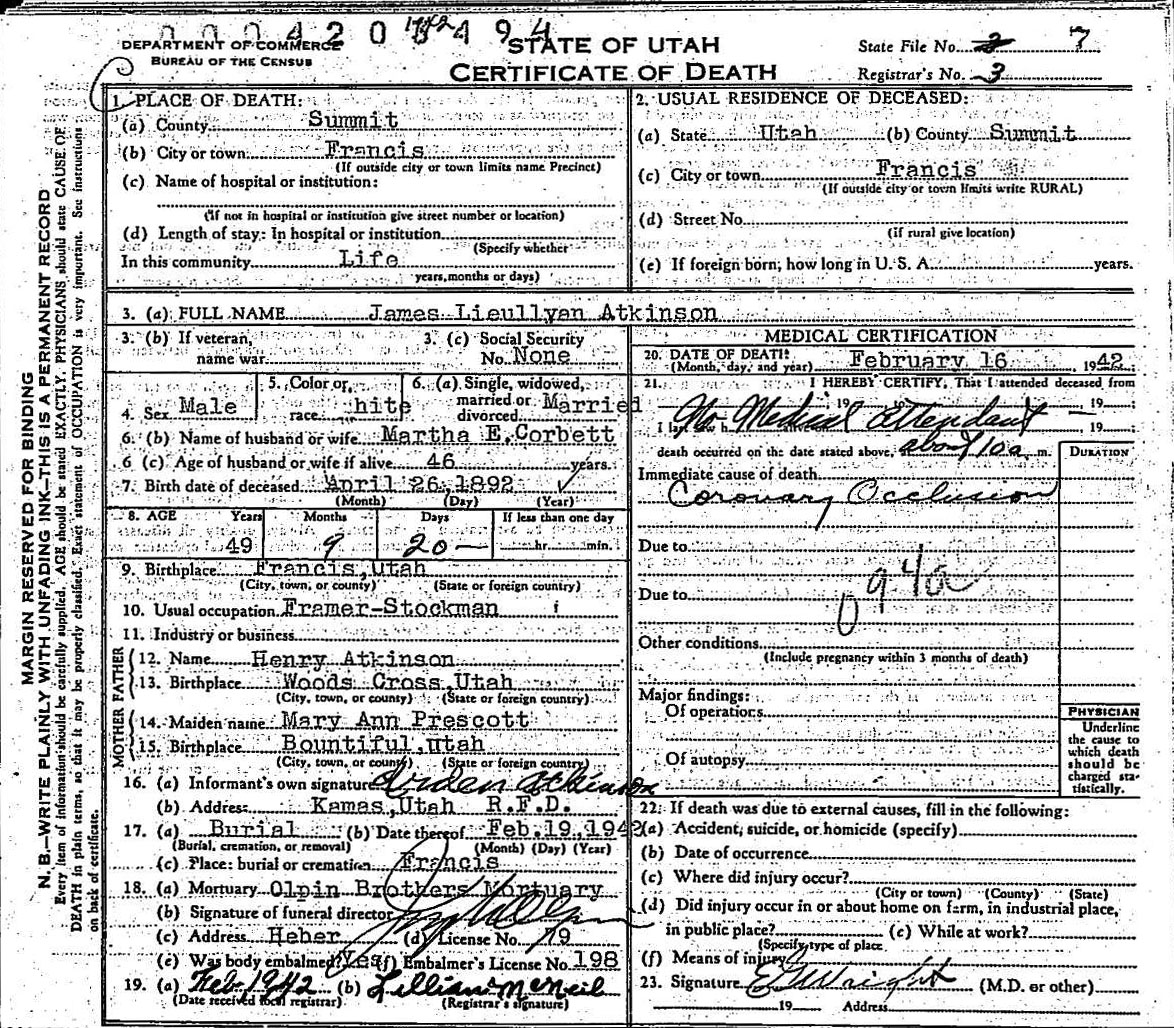 0 0 0 4 2 0 4 9 4
DEPARTMENT OF COMMERCE
BUREAU OF THE CENSUS
STATE OF UTAH
CERTIFICATE OF DEATH
State File No. 2 7
Registrar's No. 3
MARGIN RESERVED FOR BINDING
N. B.—WRITE PLAINLY WITH UNFADING INK—THIS IS A PERMANENT RECORD
Every item of information should be carefully supplied. AGE should be stated EXACTLY. PHYSICIANS should state CAUSE OF
DEATH in plain terms, so that it may be properly classified. Exact statement of OCCUPATION is very important. See instructions
on back of certificate.
1. PLACE OF DEATH:
(a) County Summit
(b) City or town Francis
(If outside city or town limits name Precinct)
(c) Name of hospital or institution:
(If not in hospital or institution give street number or location)
(d) Length of stay: In hospital or institution
(Specify whether
In this community Life
years, months or days)
2. USUAL RESIDENCE OF DECEASED:
(a) State Utah (b) County Summit
(c) City or town Francis
(If outside city or town limits write RURAL)
(d) Street No.
(if rural give location)
(e) If foreign born, how long in U. S. A. years.
3. (a) FULL NAME James Lieullyan Atkinson
3. (b) If veteran, name war
3. (c) Social Security No. None
4. Sex Male
5. Color or race hite
6. (a) Single, widowed, married or divorced Married
6. (b) Name of husband or wife Martha E. Corbett
6 (c) Age of husband or wife if alive 46 years.
7. Birth date of deceased April 26, 1892
(Month) (Day) (Year)
8. AGE Years Months Days If less than one day
49 9 20 — hr. min.
9. Birthplace Francis, Utah
(City, town, or county) (State or foreign country)
10. Usual occupation Framer-Stockman
11. Industry or business
FATHER
12. Name Henry Atkinson
13. Birthplace Woods Cross, Utah
(City, town, or county) (State or foreign country)
MOTHER
14. Maiden name Mary Ann Prescott
15. Birthplace Bountiful, Utah
(City, town, or county) (State or foreign country)
16. (a) Informant's own signature Arden Atkinson
(b) Address Kamas, Utah R.F.D.
17. (a) Burial (b) Date thereof Feb. 19, 1942
(Burial, cremation, or removal) (Month) (Day) (Year)
(c) Place: burial or cremation Francis
18. (a) Mortuary Olpin Brothers Mortuary
(b) Signature of funeral director
(c) Address Heber (d) License No. 79
(e) Was body embalmed? Yes (f) Embalmer's License No. 198
19. (a) Feb. 1942 (b) Lillian McNeil
(Date received local registrar) (Registrar's signature)
MEDICAL CERTIFICATION
20. DATE OF DEATH: February 16 1942
(Month, day, and year)
21. I HEREBY CERTIFY, That I attended deceased from
19 to 19
No Medical Attendant — 19
death occurred on the date stated above, about 10 a. m.
DURATION
Immediate cause of death
Coronary Occlusion
Due to
94a
Due to
Other conditions
(Include pregnancy within 3 months of death)
Major findings:
Of operations
Of autopsy
PHYSICIAN
Underline
the cause to
which death
should be
charged sta-
tistically.
22. If death was due to external causes, fill in the following:
(a) Accident, suicide, or homicide (specify)
(b) Date of occurrence
(c) Where did injury occur?
(City or town) (County) (State)
(d) Did injury occur in or about home on farm, in industrial place,
in public place? (e) While at work?
(Specify type of place
(f) Means of injury
23. Signature E Wright (M.D. or other)
19 Address